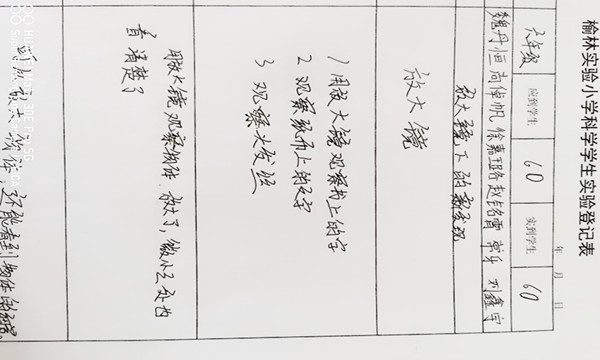 榆林实验小学科学学生实验登记表
年 月 日
六年级 应到学生 60 实到学生 60
魏丹恒 尚倬帆 徐嘉璐 赵铭雷 常斗 刘鑫宇
放大镜下的新发现
放大镜
1 用放大镜观察书上的字
2 观察纸币上的文字
3 观察火发照
用放大镜观察物体,放大了,微小之处也
看清楚了
放大物体,还能看到物体的